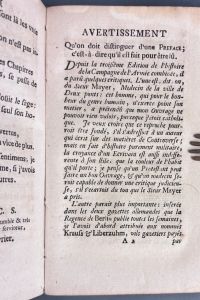 Chapitres
se passa de
C. S.
AVERTISSEMENT
Qu'on doit distinguer d'une PREFACE;
c'est-à-dire qu'il est fait pour être lû.
Depuis la troisième Edition de l'Histoire
de la Campagne de l'Armée combinée, il
a paru quelques critiques. L'une est, dit-on,
du Sieur Mayer, Médecin de la ville de
Deux-ponts: cet homme, qui pour le bon-
heur du genre humain, n'exerce point son
métier, a prétendu que mon Ouvrage ne
pouvoit rien valoir, puisque j'étois catholi-
que. Je veux croire que ce reproche pour-
roit être fondé, s'il s'adressoit à un auteur
qui écrit sur des matières de Controverse;
mais en fait d'Histoire purement militaire,
la croyance d'un Ecrivain est aussi indiffé-
rente à son sujet, que la couleur de l'habit
qu'il porte; je pense qu'un Protestant peut
faire un bon Ouvrage, & qu'un médecin se-
roit capable de donner une critique judicieu-
se, s'il s'écartoit du bon que le Sieur Mayer
a pris.
L'autre paroit plus importante: insérée
dans les deux gazettes allemandes que la
Regence de Berlin publie toutes les semaines,
je l'avois d'abord attribuée aux nommés
Krauss & Liberzuhm, vils gazetiers payés
A 2
par